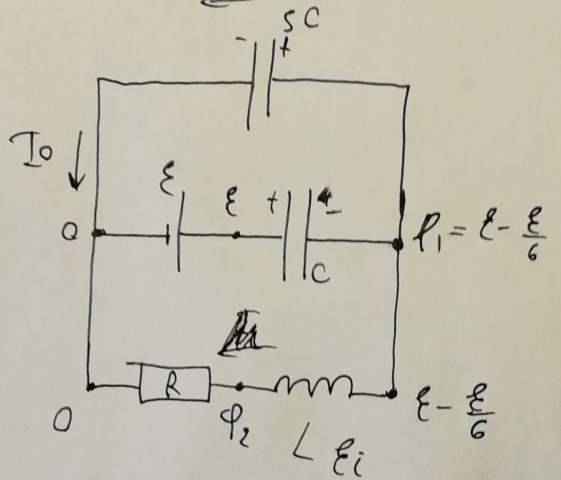 - + 5C
I₀ ↓
ℰ ℰ + -
0 C φ₁ = ℰ - ℰ/6
R
0 φ₂ L ℰi ℰ - ℰ/6